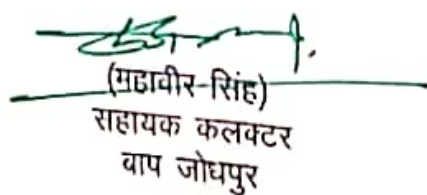 (महावीर-सिंह)
सहायक कलक्टर
वाप जोधपुर